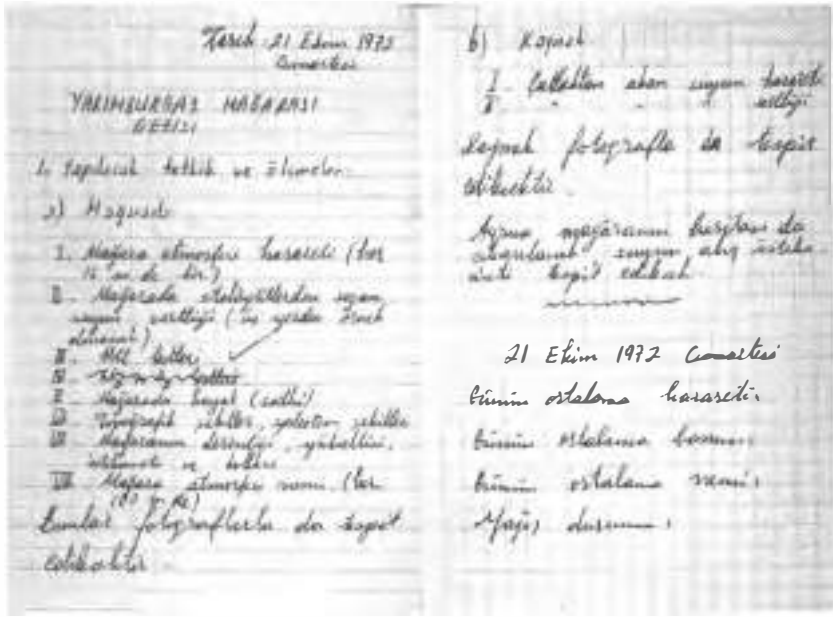 Tarih: 21 Ekim 1972
Cumartesi
YARIMBURGAZ MAĞARASI
GEZİSİ
1. Yapılacak tetkik ve ölçmeler
a) Mağarada
I. Mağara atmosferi harareti (her
15 m de bir)
II. Mağarada stalaktitlerden sızan
suyun sertliği (üç yerden örnek
alınacak)
III.
IV.
V. Mağarada hayat (canlı)
VI. Topoğrafik şekiller, şekiller
VII. Mağaranın derinliği, yüksekliği,
ve
VIII. Mağara atmosferi nemi (her
15 m de)
Bunlar fotoğraflarla da tespit
edilecektir.
b) Kaynak
I. Çatlaktan akan suyun harareti
II. " " " sertliği
Kaynak fotoğrafla da tespit
edilecektir.
Ayrıca mağaranın haritası da
suyun akış istika-
meti tespit edilecek.
21 Ekim 1972 Cumartesi
Günün ortalama harareti:
Günün ortalama basıncı:
Günün ortalama nemi:
Yağış durumu: